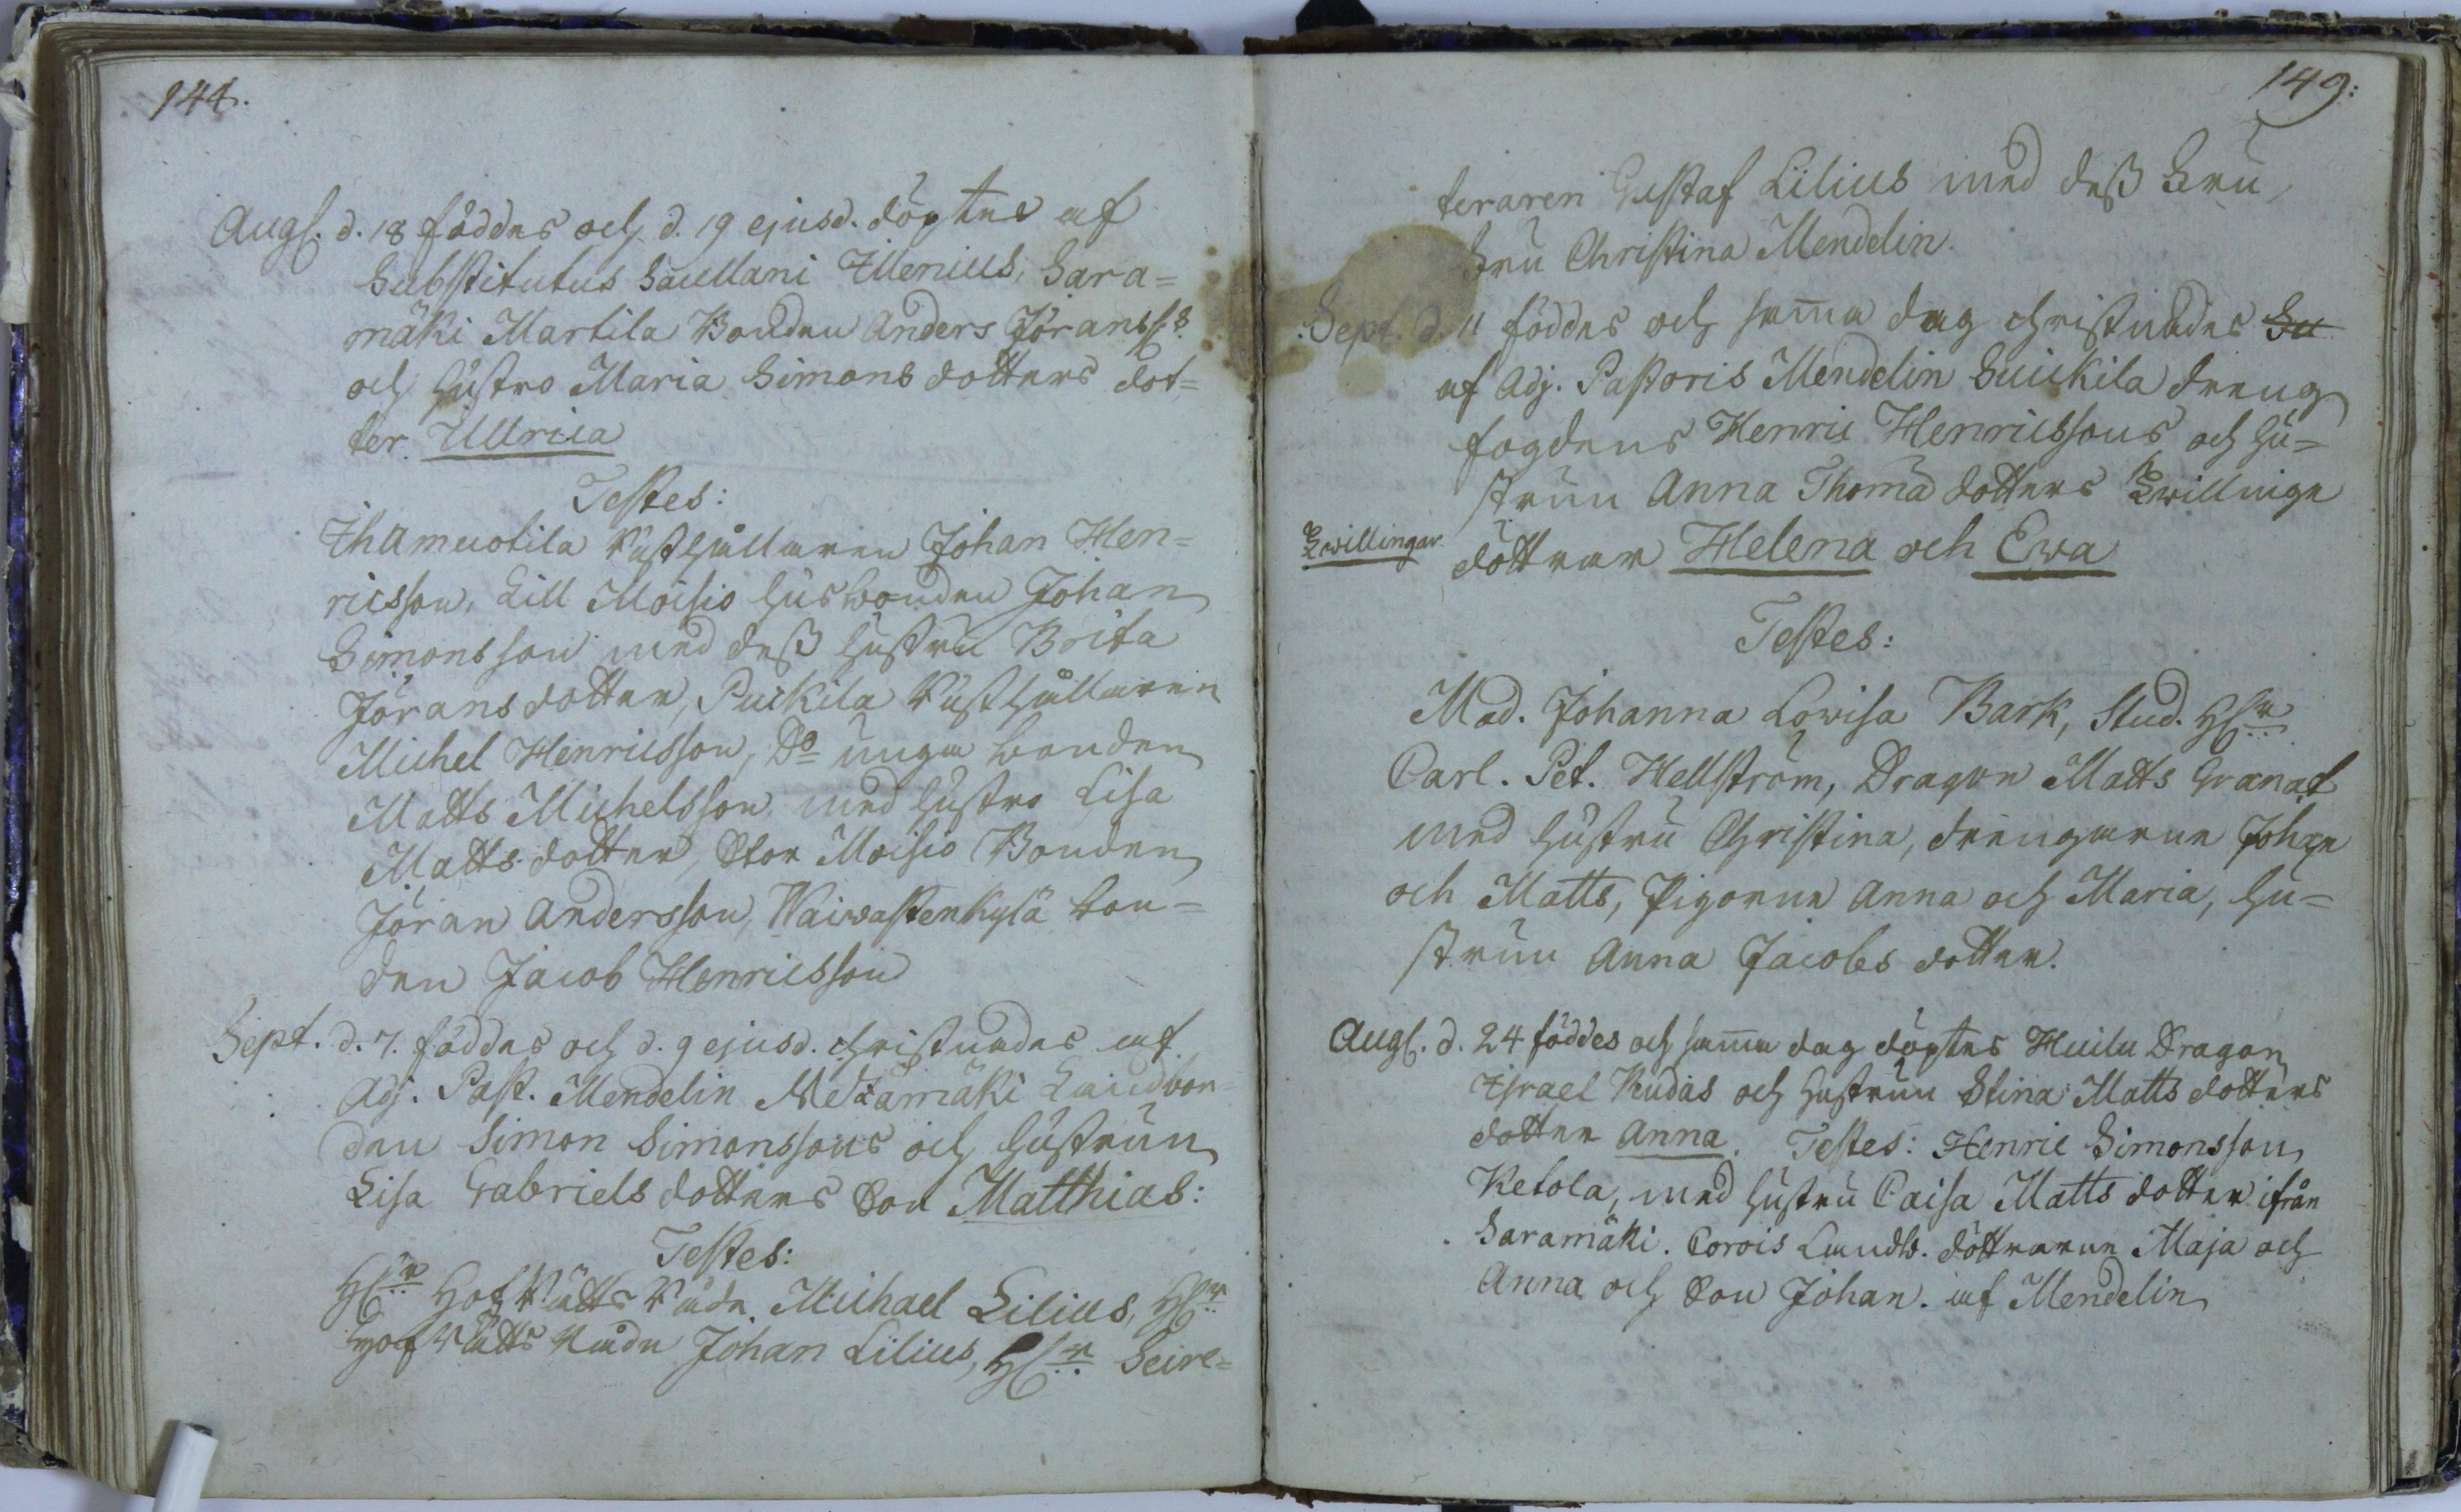 144.
Augs. d. 18 föddes och d. 19 ejusd. döptes af
Substitutus Sacellani Zilenius, Sara=
mäki Martila Bonden Anders Jöranss:s
och Hustro Maria Simons dotters dot=
ter Ullrica
Testes:
Ihamuotila Rusthållaren Johan Hen=
ricsson, Lill Moisio Husbonden Johan
Simonsson med dess hustru Brita
Jörans dotter, Puckila Rusthållaren
Michel Henricsson, Do unga bonden
Matts Michelsson med hustro Lisa
Matts dotter, Stor Moisio Bonden
Jöran Andersson, Waiwastenkylä bon=
den Jacob Henricsson
Sept. d. 7. föddes och d. 9 ejusd. christnades af
Adj. Past. Mendelin Metzämäki Landbon=
den Simon Simonssons och hustrun
Lisa Gabriels dotters son Matthias:
Testes:
H:r HofRätts Råde Michael Lilius, H:r
HofRätts Råde Johan Lilius, H:r Secre=
149:
teraren Gustaf Lilius med dess Fru,
Fru Christina Mendelin.
Sept. d. 11 föddes och samma dag christnades Su
af Adj. Pastoris Mendelin Suickila dreng
fogdens Henric Henricssons och hu=
strun Anna Thomæ dotters Zwillinge
Zwillingar
döttrar Helena och Ewa
Testes:
Mad. Johanna Lowisa Bark, Stud. H:r
Carl. Pet. Hellström, Dragon Matts Granat
med hustru Christina, drengarne Johan
och Matts, Pigorne Anna och Maria, hu=
strun Anna Jacobs dotter.
Augs. d. 24 föddes och samma dag döptes Huilu Dragon
Israel Rudas och hustrun Stina Matts dotters
dotter Anna. Testes: Henric Simonsson
Ketola, med hustru Caisa Matts dotter ifrån
Saramäki. Corois Landb. döttrarne Maja och
Anna och son Johan. af Mendelin